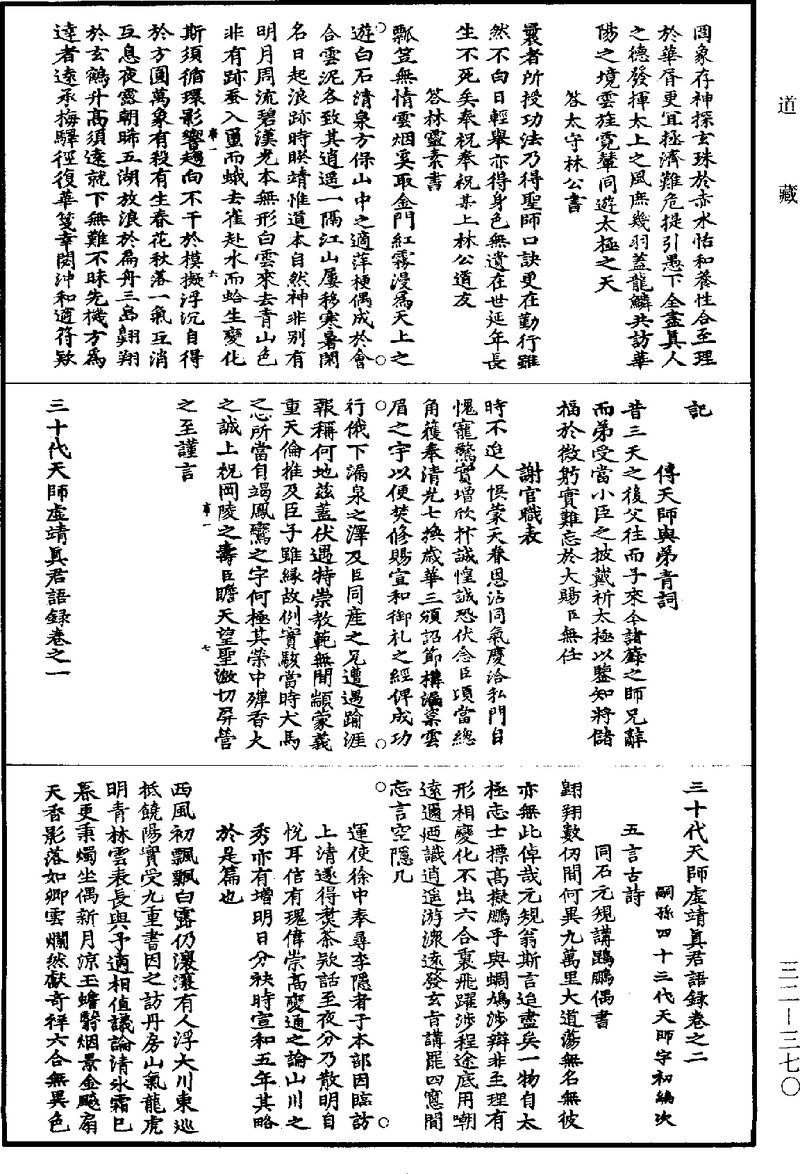 道藏
三二—三七〇
罔象存神探玄珠於赤水怡和養性合至理
於華胥更宜拯濟難危提引愚下全盡真人
之德發揮太上之風庶幾羽蓋龍鱗共訪華
陽之境雲旌霓輦同遊太極之天
答太守林公書
曩者所授功法乃得聖師口訣更在勤行雖
然不向日輕舉亦得身色無遺在世延年長
生不死矣奉祝奉祝某上林公道友
答林靈素書
瓢笠無情雲烟奚取金門紅霧漫為天上之
遊白石清泉方保山中之適萍梗偶成於會
合雲泥各致其逍遥一隔江山屢移寒暑閑
名日起浪跡時睽靖惟道本自然神非別有
明月周流碧漢光本無形白雲來去青山色
非有跡蚕入䖝而蛾去雀赴水而蛤生變化
斯須循環影響趨向不干於模擬浮沉自得
於方圓萬象有殺有生春花秋落一氣互消
互息夜露朝晞五湖放浪於扁舟三島翱翔
於玄鶴升高須遠就下無難不昧先機方為
達者遠承梅驛徑復華箋幸閲沖和適符欵
記
傳天師與弟青詞
昔三天之後父往而子來今諸籙之師兄辭
而弟受當小臣之披戴祈太極以鑒知將儲
福於微躬實難忘於大賜臣無任
謝官職表
時不迨人惧蒙天眷恩沾同氣慶洽私門自
愧寵驚實增欣抃誠惶誠恐伏念臣頃當總
角獲奉清光七換歲華三頒詔節構漏藥雲
眉之宇以便焚修賜宣和御札之經俾成功
行俄下漏泉之澤及臣同産之兄遭遇踰涯
報稱何地兹蓋伏遇特崇教範無閒顓蒙義
重天倫推及臣子雖緣故例實駭當時犬馬
之心所當自竭鳳鸞之字何極其榮中殫香火
之誠上祝岡陵之壽臣瞻天望聖激切屏營
之至謹言
三十代天師虛靖真君語録卷之一
三十代天師虛靖真君語録卷之二
嗣孫四十三代天師宇初編次
五言古詩
同石元規講鷃鵬偶書
翺翔數仞間何異九萬里大道蕩無名無彼
亦無此倬哉元規翁斯言迨盡矣一物自太
極志士標高擬鵬乎與蜩鳩涉辯非至理有
形相變化不出六合裏飛躍涉程途底用嘲
遠邇迺識逍遥游濠遠發玄旨講罷四窓間
忘言空隱几
運使徐中奉尋李隱者于本部因臨訪
上清遂得煑茶欵話至夜分乃散明自
悅耳信有瑰偉崇高變通之論山川之
秀亦有增明日分袂時宣和五年其略
於是篇也
西風初飄飄白露仍瀼瀼有人浮大川東巡
柢饒陽實受九重書因之訪丹房山氣龍虎
明青林雲表長與予適相值議論清氷霜巳
幕更秉燭坐偶新月涼玉蟾翳烟景金飈扇
天香影落如卿雲爛然獻奇祥六合無異色